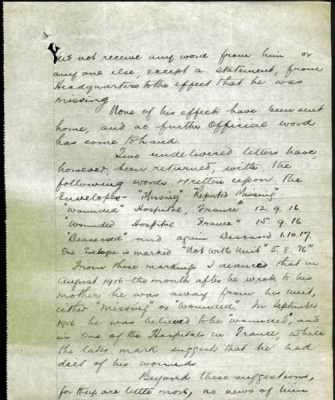 not receive any word from him or
any one else, except a statement, from
Headquarters to the effect that he was
missing.
None of his effects have been sent
home, and no further Official word
has come to hand.
Two undelivered letters have,
however, been returned, with the
following words written upon the
Envelopes - "Missing" "Reported Missing"
"Wounded" Hospital, France" 12.9.16
"Wounded Hospital France" 15.9.16
"Deceased" and again Deceased 1.10.17.
One Envelope is marked "Not with Unit" 5.8.16"
From these marking I deduce that in
August 1916 - the month after he wrote to his
mother he was away from his unit,
either "missing" or "wounded". In September
1916 he was believed to be "wounded", and
in one of the Hospitals in France, while
the later mark suggest that he had
died of his wounds.
Beyond these suggestions,
for they are little more, no news of him